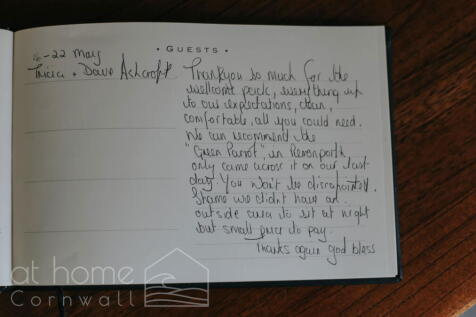 • GUESTS •
-22 May
Tricia + Dave Ashcroft
Thankyou so much for the
wellcome pack, everything up
to our expectations, clean,
comfortable, all you could need.
We can recommend the
"Green Parrot", in Perranporth,
only came across it on our last
day. You won't be disappointed.
Shame we didn't have an
outside area to sit at night
but small price to pay.
Thanks again god bless
at home
Cornwall